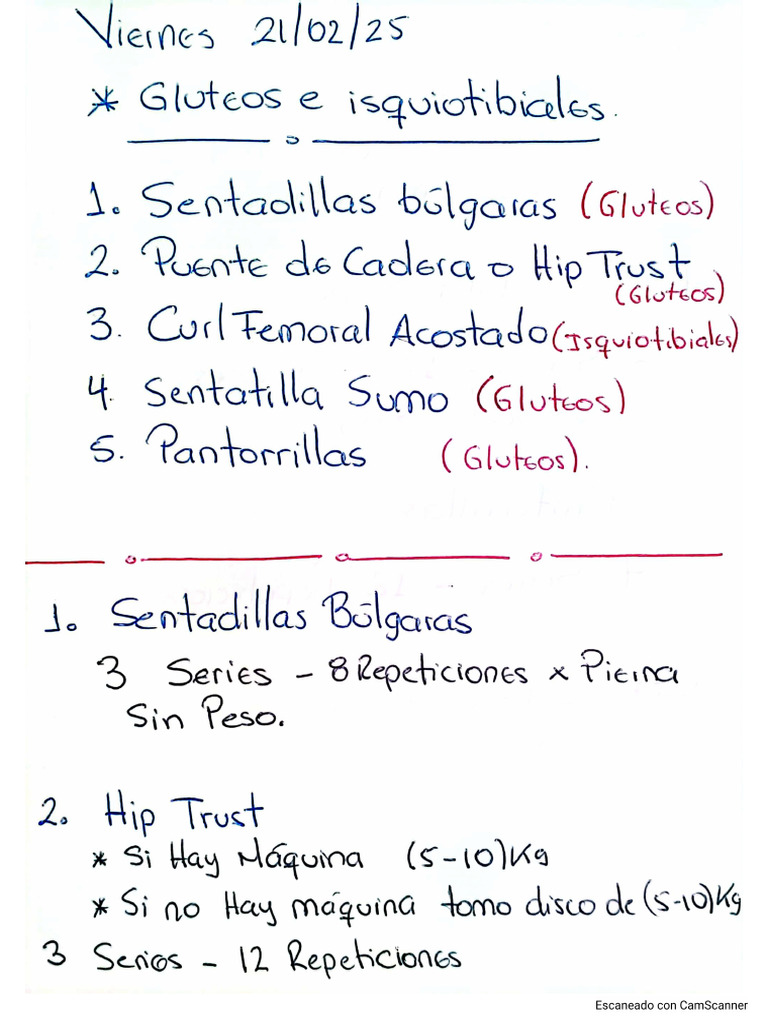 Viernes 21/02/25
* Gluteos e isquiotibiales.
1. Sentadillas búlgaras (Gluteos)
2. Puente de Cadera o Hip Trust
(Gluteos)
3. Curl Femoral Acostado (Isquiotibiales)
4. Sentatilla Sumo (Gluteos)
5. Pantorrillas (Gluteos).
1. Sentadillas Búlgaras
3 Series - 8 Repeticiones x Pierna
Sin Peso.
2. Hip Trust
* Si Hay Máquina (5-10)Kg
* Si no Hay máquina tomo disco de (5-10)Kg
3 Series - 12 Repeticiones
Escaneado con CamScanner